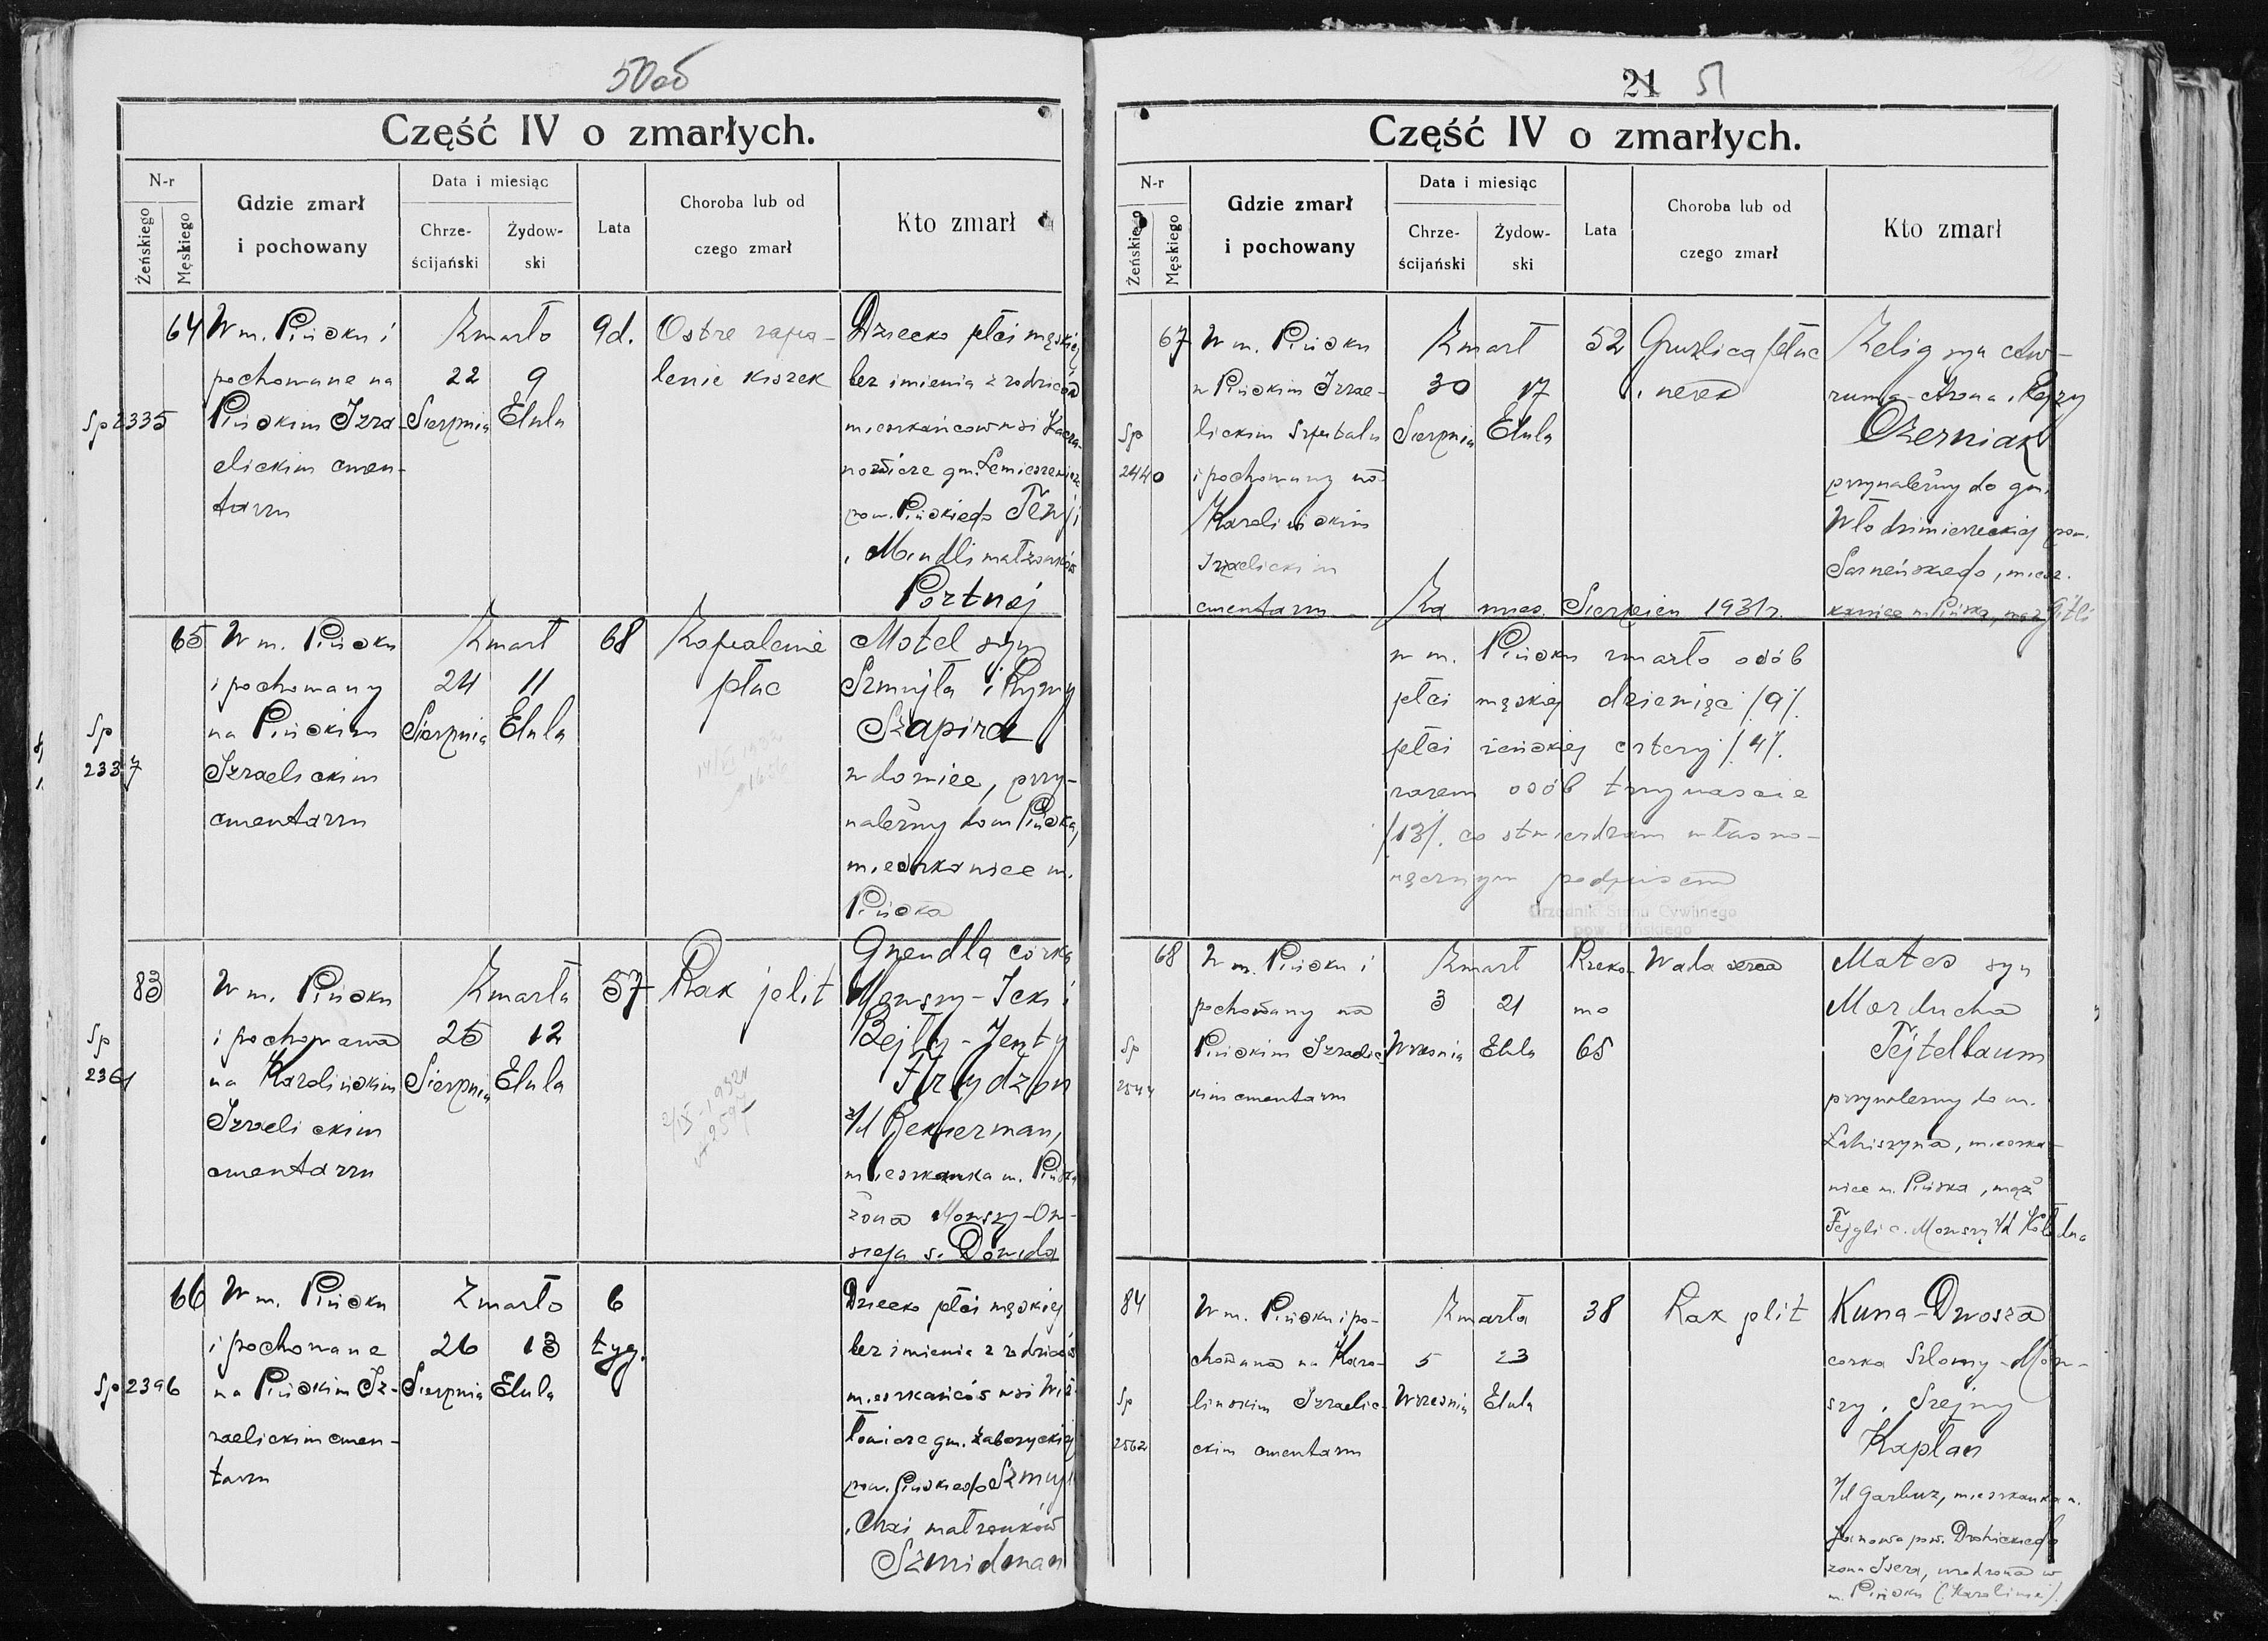 50об
Część IV o zmarłych.
N-r
Żeńskiego
Męskiego
Gdzie zmarł
i pochowany
Data i miesiąc
Chrze-
ścijański
Żydow-
ski
Lata
Choroba lub od
czego zmarł
Kto zmarł
64
Sp 2335
W m. Pińsku i
pochowane na
Pińskim Izra-
elickim cmen-
tarzu
Zmarło
22 9
Sierpnia Elula
9 d.
Ostre zapa-
lenie kiszek
Dziecko płci męskiej
bez imienia z rodziców
mieszkańców wsi
gm. Lemieszewicze
pow. Pińskiego
i Mindli małżonków
Portnoj
65
Sp
2337
W m. Pińsku
i pochowany
na Pińskim
Izraelickim
cmentarzu
Zmarł
24 11
Sierpnia Elula
68
Zapalenie
płuc
Motel syn
Szmujła i Ryzny
Szapira
wdowiec, przy-
należny do m Pińska,
mieszkaniec m.
Pińska
83
Sp
2361
W m. Pińsku
i pochowana
na Karolińskim
Izraelickim
cmentarzu
Zmarła
25 12
Sierpnia Elula
57
Rak jelit
Gnendla córka
Mowszy-Icki i
Bejły-Jenty
Frydzon
z/d Bekierman,
mieszkanka m. Pińska
żona Mowszy-Ow-
sieja s. Dowida
66
Sp 2396
W m. Pińsku
i pochowane
na Pińskim Iz-
raelickim cmen-
tarzu
Zmarło
26 13
Sierpnia Elula
6
tyg.
Dziecko płci męskiej
bez imienia z rodziców
mieszkańców wsi Wiz-
łowicze gm. Żabczyckiej
pow. Pińskiego Szmujły
i Chai małżonków
Szmidman
21 51
Część IV o zmarłych.
N-r
Żeńskiego
Męskiego
Gdzie zmarł
i pochowany
Data i miesiąc
Chrze-
ścijański
Żydow-
ski
Lata
Choroba lub od
czego zmarł
Kto zmarł
67
Sp
2440
W m. Pińsku
w Pińskim Izrae-
lickim szpitalu
i pochowany na
Karolińskim
Izraelickim
cmentarzu
Zmarł
30 17
Sierpnia Elula
52
Gruźlica płuc
i nerek
Zelig syn Aw-
ruma-Arona i Rejzy
Ozerniak
przynależny do gm.
Włodzimierzeckiej pow.
Sarneńskiego, miesz-
kaniec m. Pińska, mąż Gitli
Za mies. Sierpień 1931 r.
w m. Pińsku zmarło osób
płci męskiej dziewięć /9/.
płci żeńskiej cztery /4/.
razem osób trzynaście
/13/. co stwierdzam własno-
ręcznym podpisem
Urzędnik Stanu Cywilnego
pow. Pińskiego
68
Sp
2544
W m. Pińsku i
pochowany na
Pińskim Izraelic-
kim cmentarzu
Zmarł
3 21
Września Elula
Rzeko-
mo
65
Wada serca
Mates syn
Morducha
Tejtelbaum
przynależny do m.
Łahiszyna, mieszka-
niec m. Pińska, mąż
Fejgli c. Mowszy z/d Kołodna
84
Sp
2562
W m. Pińsku i po-
chowana na Karo-
lińskim Izraelic-
ckim cmentarzu
Zmarła
5 23
Września Elula
38
Rak jelit
Kuna-Dwosza
córka Szlomy-Mow-
szy i Szejny
Kapłan
z/d Garbuz, mieszkanka m.
Janowa pow. Drohickiego
żona Isera, urodzona w
m. Pińsku (Karolinie).